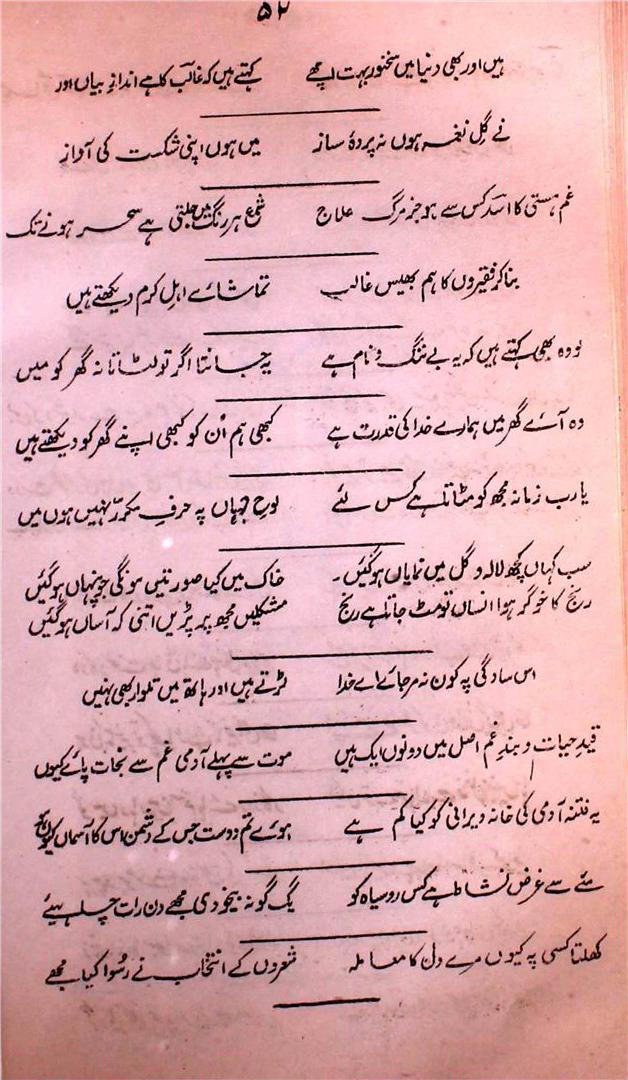 ۵۲
ہیں اور بھی دنیا میں سخنور بہت اچھے کہتے ہیں کہ غالبؔ کا ہے اندازِ بیاں اور
نے گلِ نغمہ ہوں نہ پردۂ ساز میں ہوں اپنی شکست کی آواز
غمِ ہستی کا اسدؔ کس سے ہو جز مرگ علاج شمع ہر رنگ میں جلتی ہے سحر ہونے تک
بنا کر فقیروں کا ہم بھیس غالب تماشائے اہلِ کرم دیکھتے ہیں
لو وہ بھی کہتے ہیں کہ یہ بے ننگ و نام ہے یہ جانتا اگر تو لٹاتا نہ گھر کو میں
وہ آئے گھر میں ہمارے خدا کی قدرت ہے کبھی ہم اُن کو کبھی اپنے گھر کو دیکھتے ہیں
یارب زمانہ مجھ کو مٹاتا ہے کس لئے لوحِ جہاں پہ حرفِ مکرّر نہیں ہوں میں
سب کہاں کچھ لالہ و گل میں نمایاں ہو گئیں۔ خاک میں کیا صورتیں ہونگی جو پنہاں ہو گئیں
رنج کا خوگر ہوا انساں تو مٹ جاتا ہے رنج مشکلیں مجھ پر پڑیں اتنی کہ آساں ہو گئیں
اس سادگی پہ کون نہ مر جائے اے خدا لڑتے ہیں اور ہاتھ میں تلوار بھی نہیں
قیدِ حیات و بندِ غم اصل میں دونوں ایک ہیں موت سے پہلے آدمی غم سے نجات پائے کیوں
یہ فتنہ آدمی کی خانہ ویرانی کو کیا کم ہے ہوئے تم دوست جس کے دشمن اس کا آسماں کیوں ہو
مئے سے غرض نشاط ہے کس روسیاہ کو یک گونہ بیخودی مجھے دن رات چاہیئے
کھلتا کسی پہ کیوں مرے دل کا معاملہ شعروں کے انتخاب نے رُسوا کیا مجھے